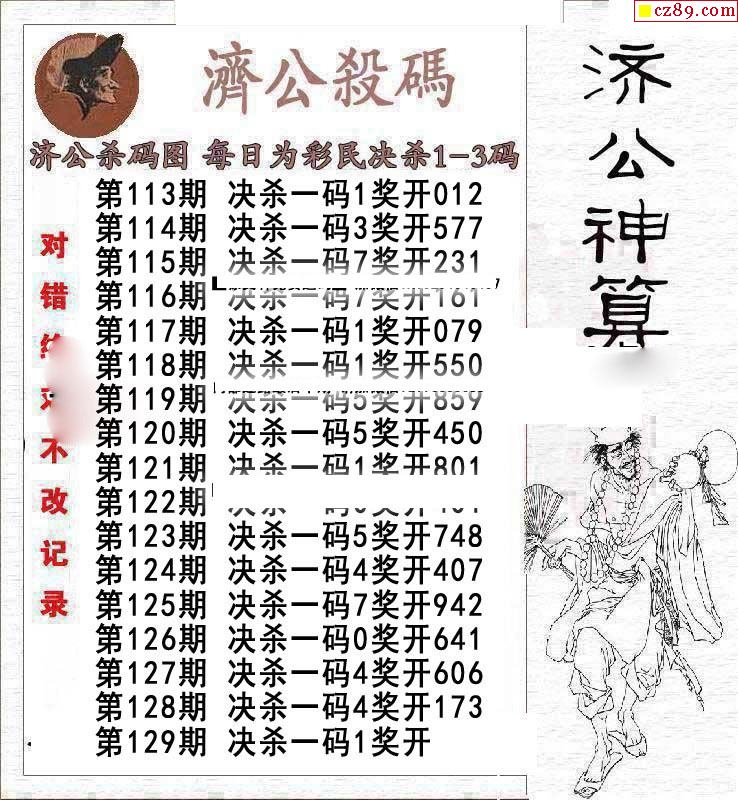 cz89.com
濟公殺碼
济公杀码图 每日为彩民决杀1-3码
第113期 决杀一码1奖开012
第114期 决杀一码3奖开577
第115期 决杀一码7奖开231
第116期 决杀一码7奖开161
第117期 决杀一码1奖开079
第118期 决杀一码1奖开550
第119期 决杀一码5奖开859
第120期 决杀一码5奖开450
第121期 决杀一码1奖开801
第122期
第123期 决杀一码5奖开748
第124期 决杀一码4奖开407
第125期 决杀一码7奖开942
第126期 决杀一码0奖开641
第127期 决杀一码4奖开606
第128期 决杀一码4奖开173
第129期 决杀一码1奖开
对错
不改记录
济公神算